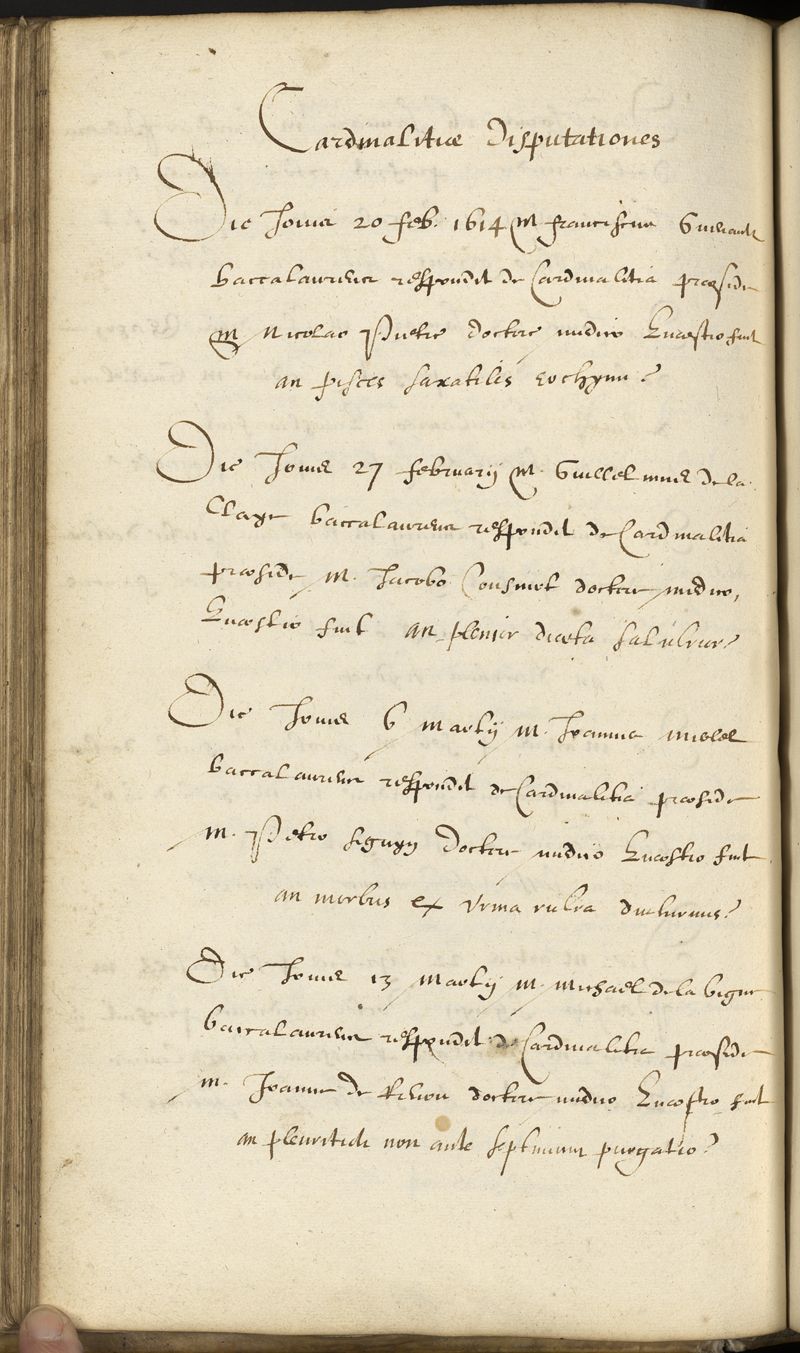 Cardinalitiæ Disputationes
Die Jovis 20 feb. 1614 M franciscus Guerault
baccalaureus respondit de Cardinalitia præside
M Nicolao Pietre doctore medico Quæstio fuit
an pisces saxatiles euchymi?
Die Jovis 27 februarij M. Guillelmus de la
Claye baccalaureus respondit de Cardinalitia
præside M. Jacobo Cousinot doctore medico,
Quæstio fuit an plenior diæta salubrior?
Die Jovis 6 martij M. Joannes
baccalaureus respondit de Cardinalitia præside
M. Petro seguyn Doctore medico Quæstio fuit
an morbus ex urina rubra diuturnus?
Die Jovis 13 Martij M. Michael de la vigne
baccalaureus respondit de Cardinalitia præside
M. Joanne de doctore medico Quæstio fuit
an pleuritidi non ante septimum purgatio?